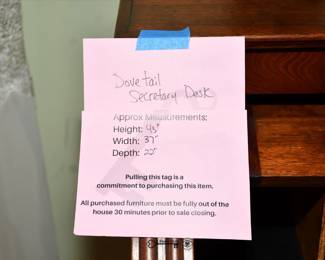 Dovetail
Secretary Desk
Approx Measurements:
Height: 45"
Width: 37"
Depth: 22"
Pulling this tag is a
commitment to purchasing this item.
All purchased furniture must be fully out of the
house 30 minutes prior to sale closing.